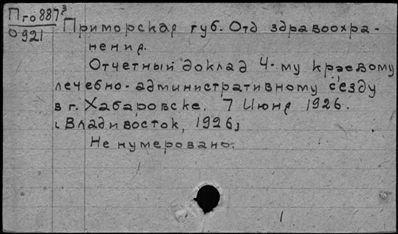 Пго887³
0921
Приморская губ. Отд здравоохра-
нения.
Отчетный доклад 4-му краевому
лечебно-административному съезду
в г. Хабаровске. 7 Июня 1926.
[Владивосток, 1926]
Не нумеровано.